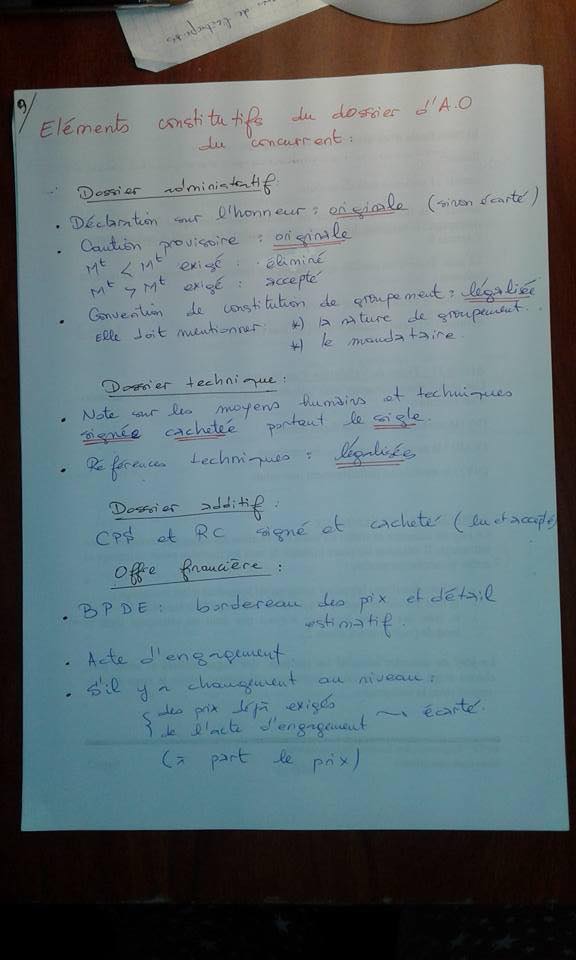 9/
Eléments constitutifs du dossier d'A.O
du concurrent :
Dossier administratif :
. Déclaration sur l'honneur : originale (sinon écarté)
. Caution provisoire : originale
Mt < Mt exigé : éliminé
Mt > Mt exigé : accepté
. Convention de constitution de groupement : légalisée
Elle doit mentionner : *) la nature de groupement.
*) le mandataire.
Dossier technique :
. Note sur les moyens humains et techniques
signée cachetée portant le sigle.
. Références techniques : légalisées
Dossier additif :
CPS et RC signé et cacheté (lu et accepté)
Offre financière :
. BPDE : bordereau des pix et détail
estimatif.
. Acte d'engagement.
. S'il y a changement au niveau :
{ des prix déjà exigés
de l'acte d'engagement → écarté.
(à part le prix)